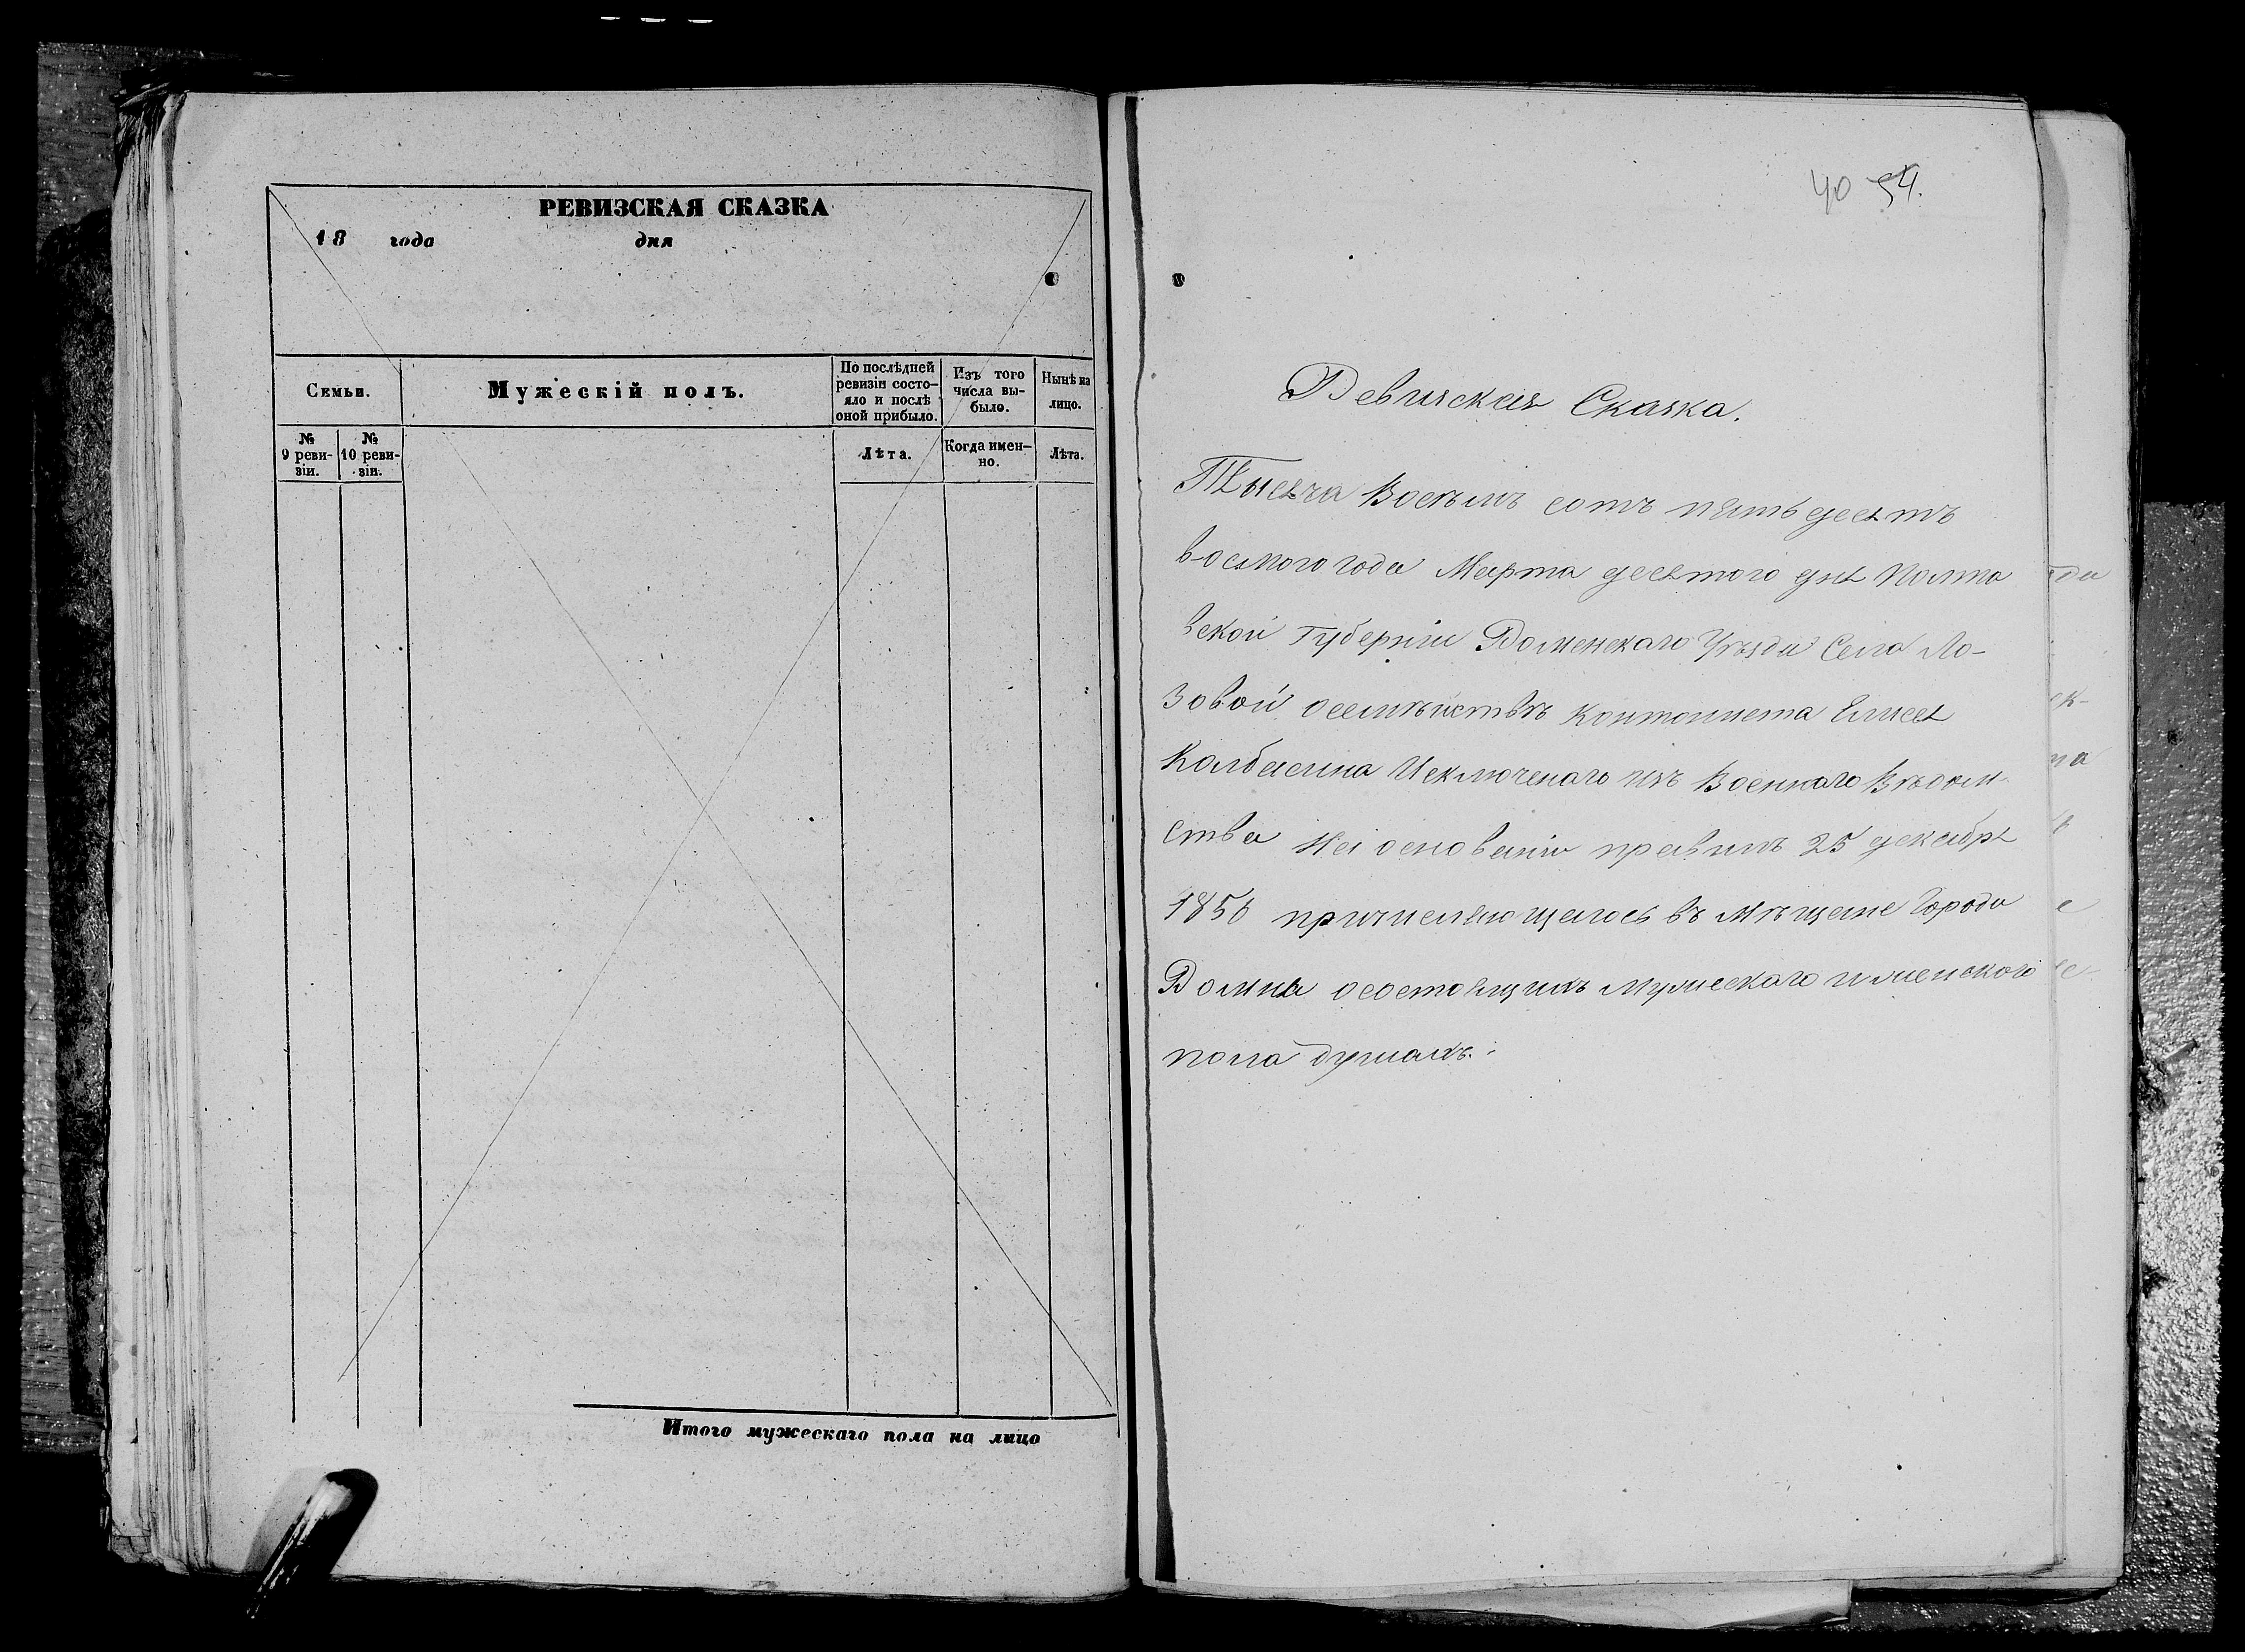 РЕВИЗСКАЯ СКАЗКА
18 года дня
Семьи.
Мужескій полъ.
По послѣдней
ревизіи состо-
яло и послѣ
оной прибыло.
Изъ того
числа вы-
было.
Нынѣ на
лицо.
№
9 реви-
зіи.
№
10 реви-
зіи.
Лѣта.
Когда имен-
но.
Лѣта.
Итого мужескаго пола на лицо
40 54.
Ревизская Сказка.
Тысяча Восѣмъ сотъ пятьдесятъ
восмого года Марта десятого дня Полта
вской Губерніи Роменскаго Уѣзда Села Ло-
зовой осемѣйствѣ Контониста Елисея
Колбасина Исключенаго изъ Военнаго Вѣдом-
ства На основаніи правилъ 25 декабря
1856 причисляющагося въ Мѣщане Города
Ромна осостоящихъ мужескаго и женского
пола душахъ.